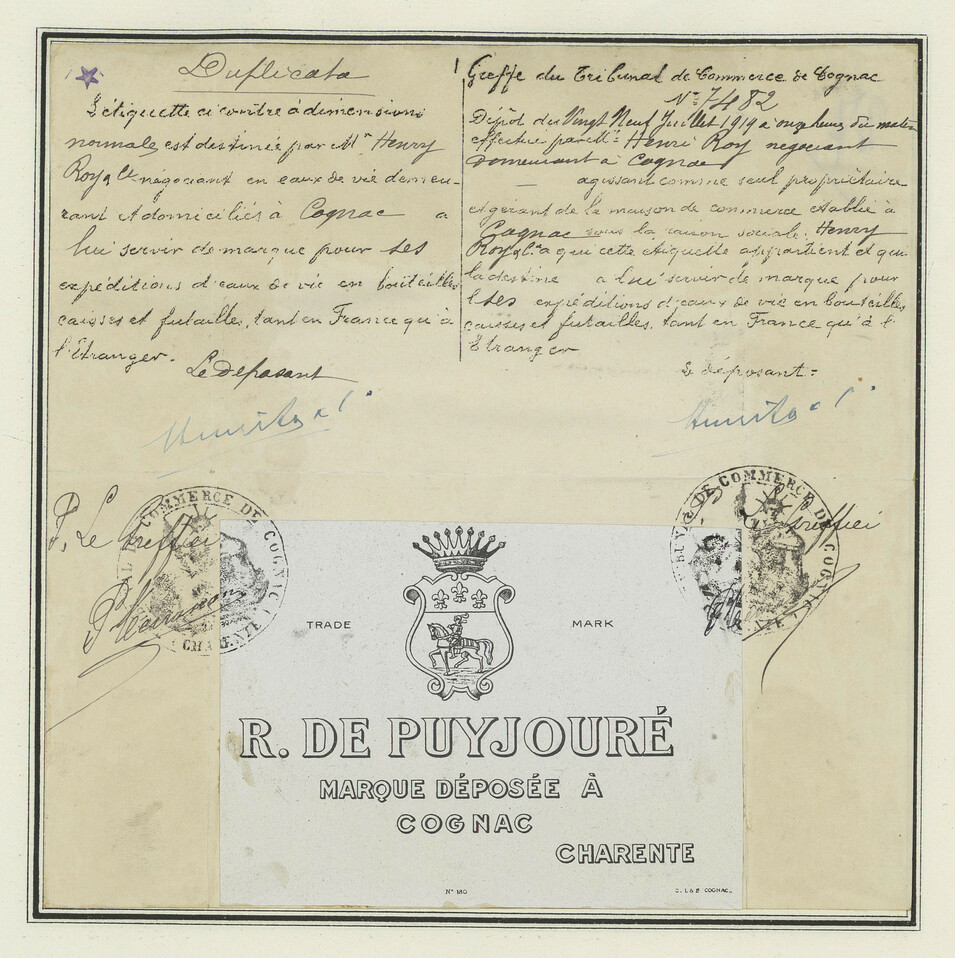 Duplicata
L'étiquette ci contre à dimensions
normales est destinée par Mr Henry
Roy & Cie négociant en eaux de vie demeu-
rant et domiciliés à Cognac a
lui servir de marque pour ses
expéditions d'eaux de vie en bouteilles
caisses et futailles, tant en France qu'à
l'Etranger.
Le deposant
P. Le Greffier
Greffe du Tribunal de Commerce de Cognac
No 7482
Dépôt du Vingt Neuf Juillet 1919 à onze heures du matin
effectué par Mr Henri Roy négociant
demeurant à Cognac
— agissant comme seul propriétaire
et gérant de la maison de commerce etablie à
Cognac sous la raison sociale. Henry
Roy & Cie a qui cette étiquette appartient et qui
la destine a lui servir de marque pour
ses expéditions d'eaux de vie en bouteilles
caisses et futailles, tant en France qu'à l'
Etranger
Le déposant:
Greffier
COMMERCE DE COGNAC
CHARENTE
DE COMMERCE DE COGNAC
TRADE MARK
R. DE PUYJOURÉ
MARQUE DÉPOSÉE À
COGNAC
CHARENTE
No 180
COGNAC.